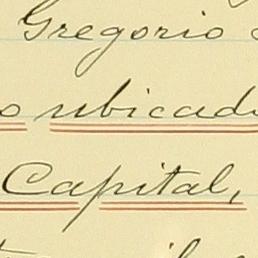 Gregorio
o ubicad
Capital,